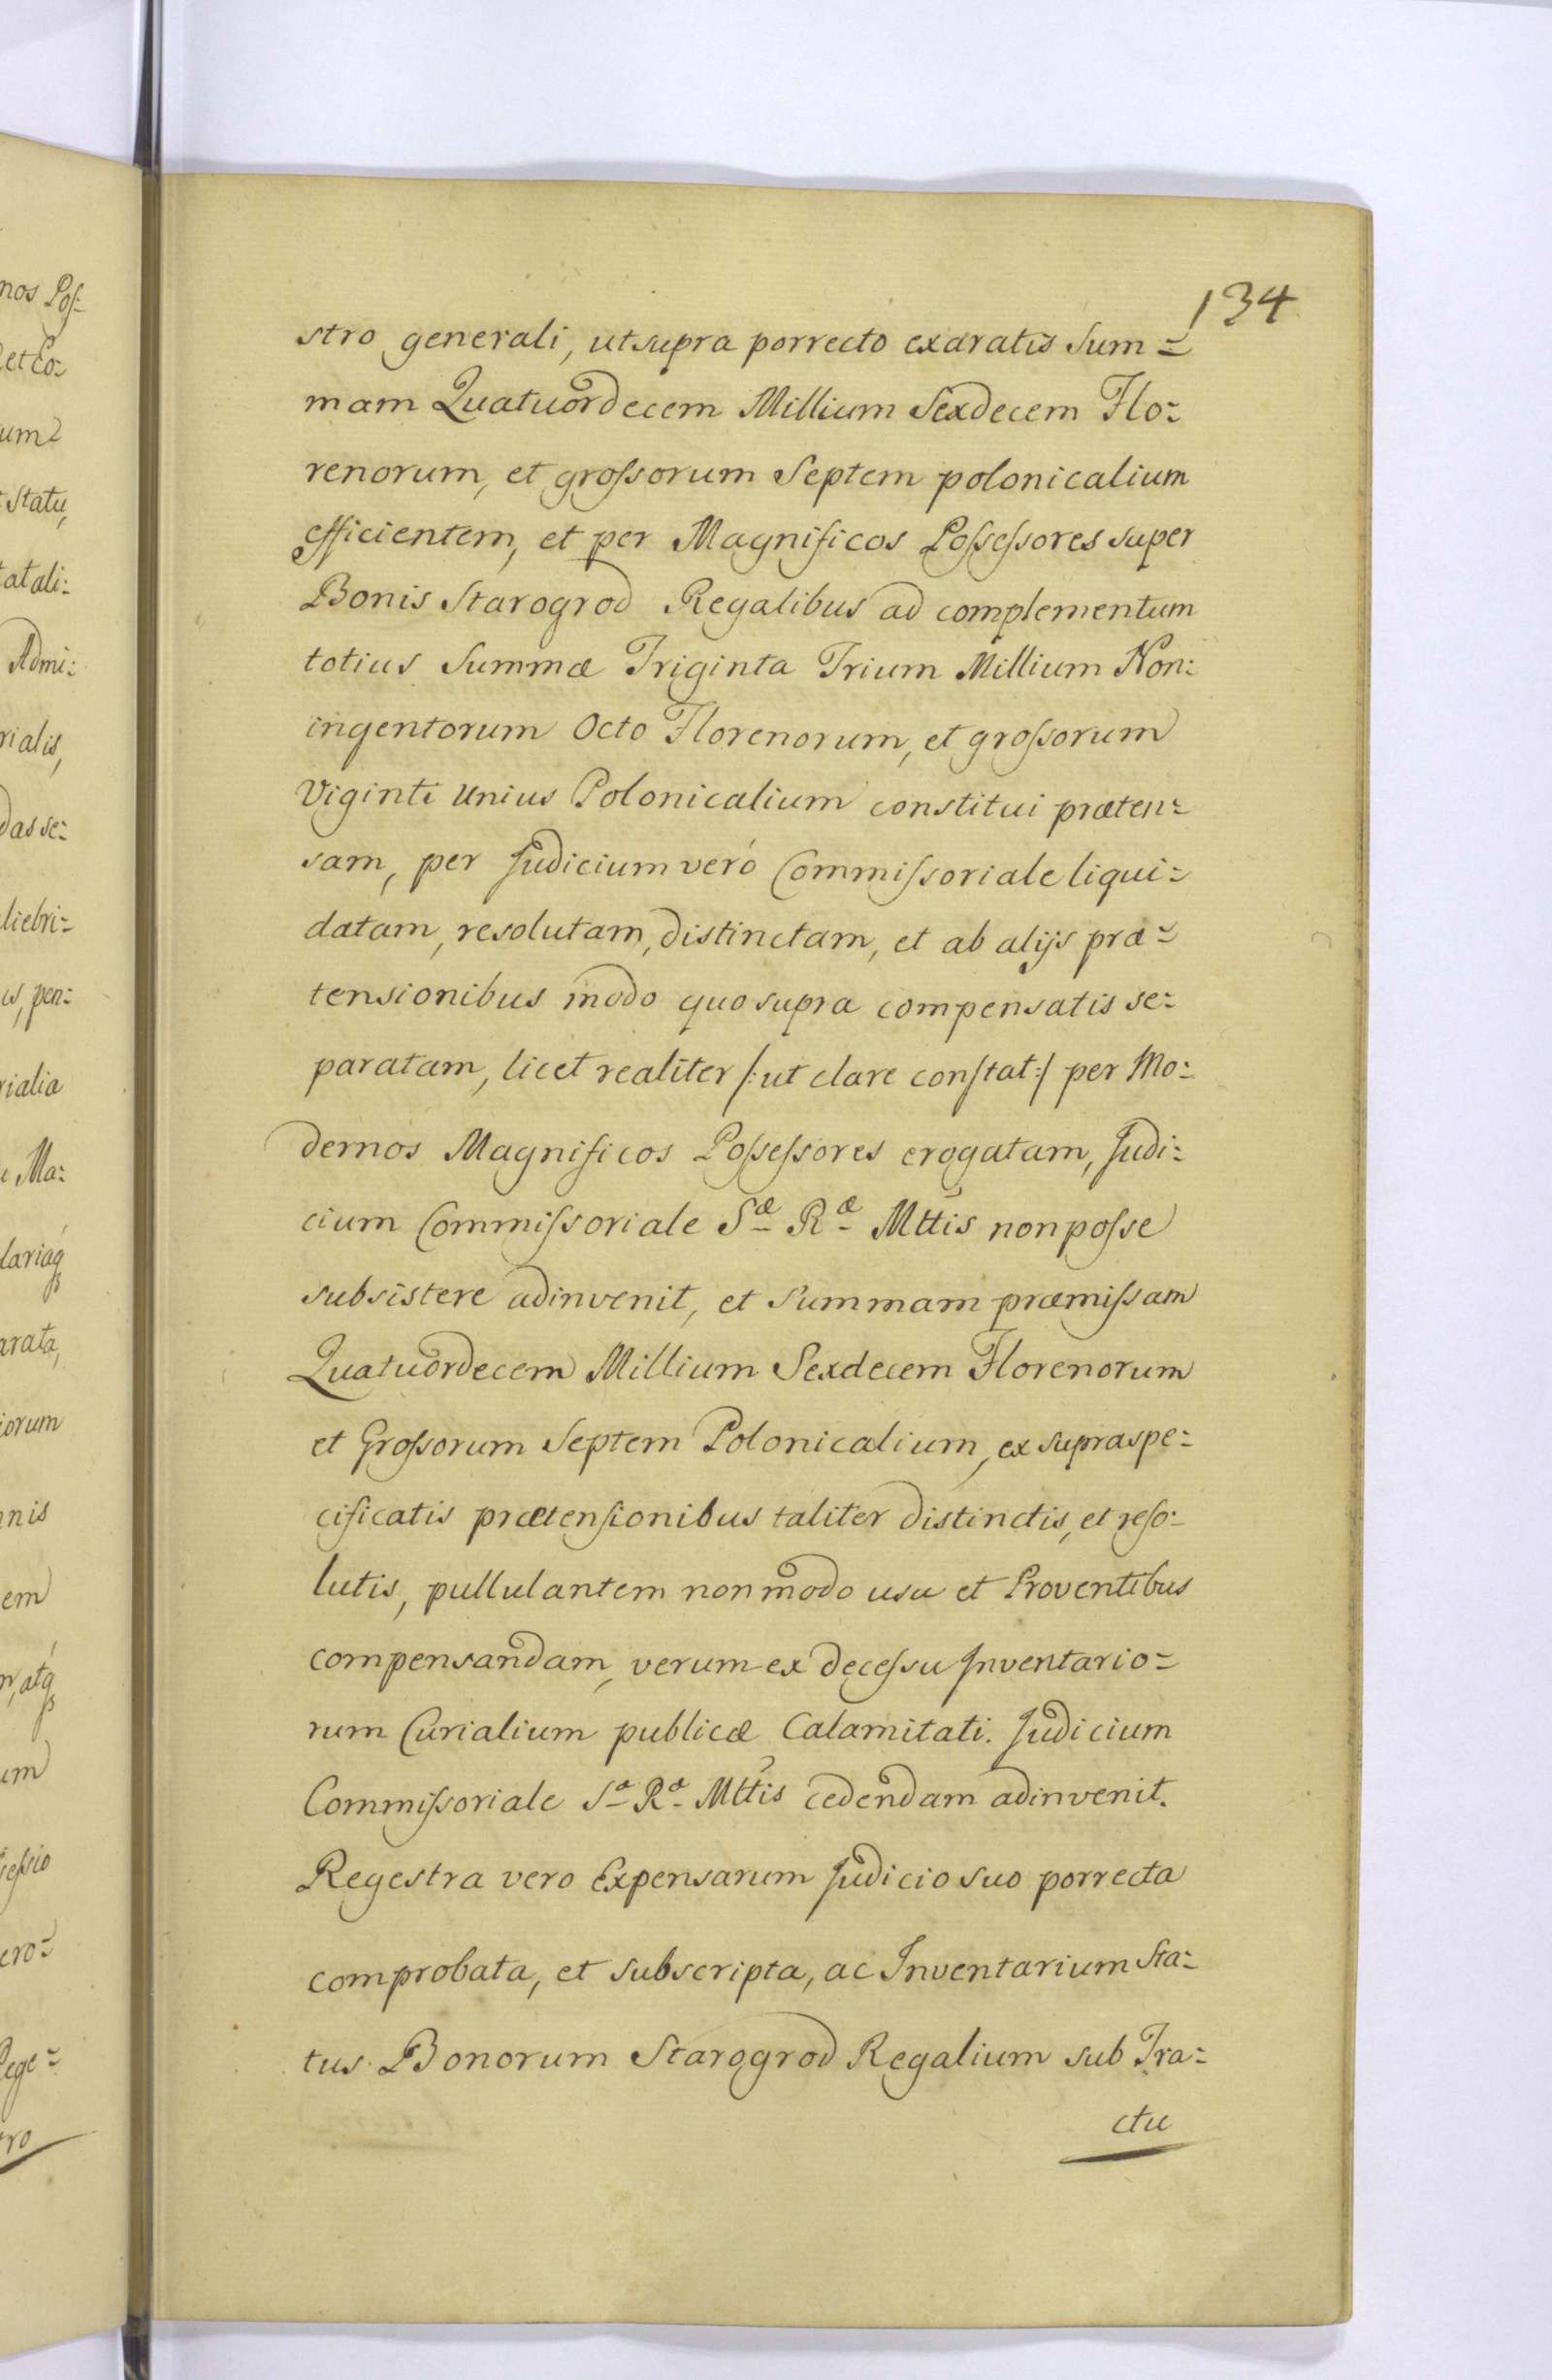 134
stro generali, ut supra porrecto exaratis Sum=
mam Quatuordecem Millium Sexdecem Flo=
renorum, et groſsorum Septem polonicalium
efficientem, et per Magnificos Poſseſsores super
Bonis Starogrod Regalibus ad complementum
totius Summæ Triginta Trium Millium Non=
ingentorum Octo Florenorum, et groſsorum
Viginti Unius Polonicalium constitui præten=
sam, per Judicium veró Commiſsoriale liqui=
datam, resolutam, distinctam, et ab alijs præ=
tensionibus modo quo supra compensatis se=
paratam, licet realiter /: ut clare conſtat :/ per Mo=
dernos Magnificos Poſseſsores erogatam, Judi=
cium Commiſsoriale Sæ Ræ Mttis non poſse
subsistere adinvenit, et Summam præmiſsam
Quatuordecem Millium Sexdecem Florenorum
et Groſsorum Septem Polonicalium, ex supraspe=
cificatis prætenſionibus taliter distinctis, et reſo=
lutis, pullulantem non modo usu et Proventibus
compensandam, verum ex deceſsu Inventario=
rum Curialium publicæ Calamitati. Judicium
Commiſsoriale Sæ Ræ Mttis cedendam adinvenit.
Regestra vero Expensarum Judicio suo porrecta
comprobata, et subscripta, ac Inventarium Sta=
tus Bonorum Starogrod Regalium sub Tra=
ctu
nos Poſ=
et Co=
um
Statu,
tatali=
Admi=
rialis,
das se=
liebri=
is, pen=
rialia
Ma=
lariaq
arata,
iorum
nis
em
atq
um
ſeſsio
ero=
Rege=
ro